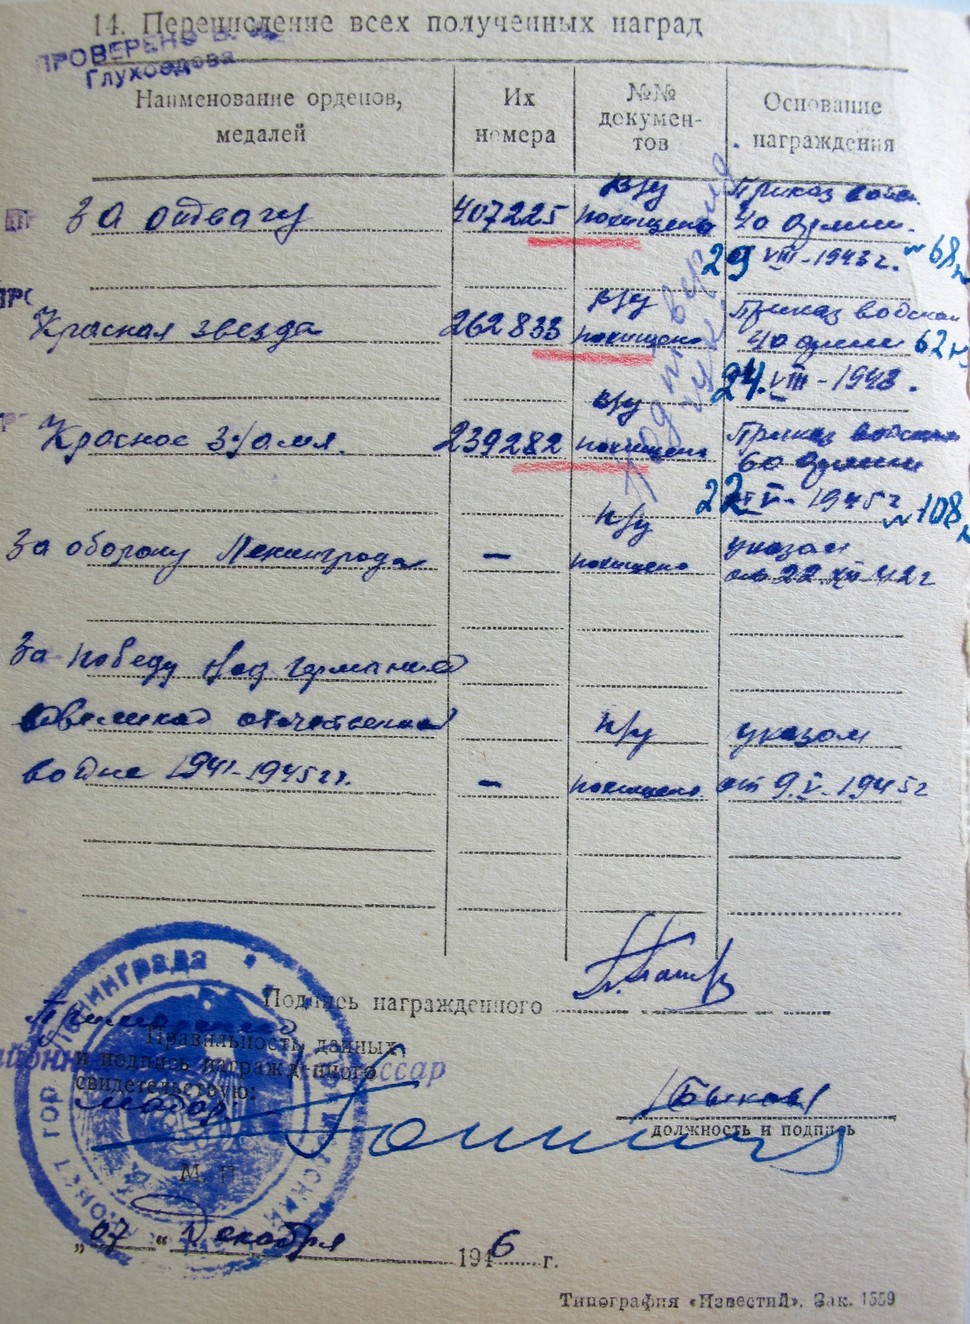 14. Перечисление всех полученных наград
ПРОВЕРЕНО
Глухоедова
Наименование орденов, медалей
Их номера
№№ докумен-тов
Основание награждения
За отвагу 407225 в/у похищено Приказ войск.
40 армии. № 68/н
29 VIII-1943 г.
Красная звезда 262833 в/у похищено Приказ войскам
40 армии 62 н
24. VIII-1943.
Красное Знамя. 239282 в/у похищено Приказ войскам
60 армии
22 V-1945 г № 108
За оборону Ленинграда - в/у похищено указом
от 22 XII 42 г
За победу над Германией
в великой отечественной в/у указом
войне 1941-1945 гг. - похищено от 9.V-1945 г
Подпись награжденного
Правильность данных
и подпись награжденного
свидетельствую:
майор
/Быков/
должность и подпись
М. П.
„07“ Декабря 1946 г.
Типография «Известий». Зак. 1559